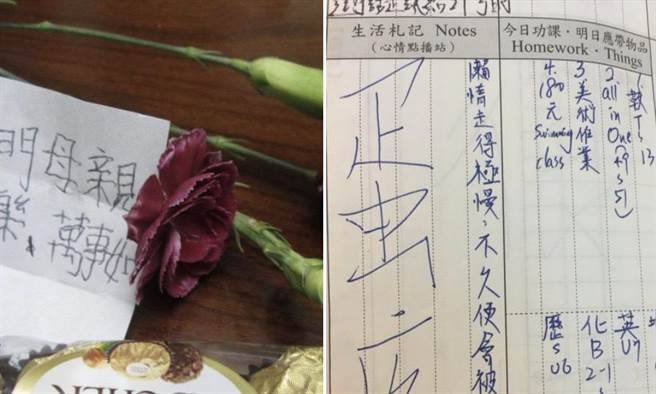 門母親
樂，萬事如
生活札記 Notes
(心情點播站)
今日功課・明日應帶物品
Homework・Things
2. all in One
3.美術作業
4. 180元 Swimming class
英 U7
化 B 2-1
歷 S U6
懶惰走得極慢，不久便會被
正虫二